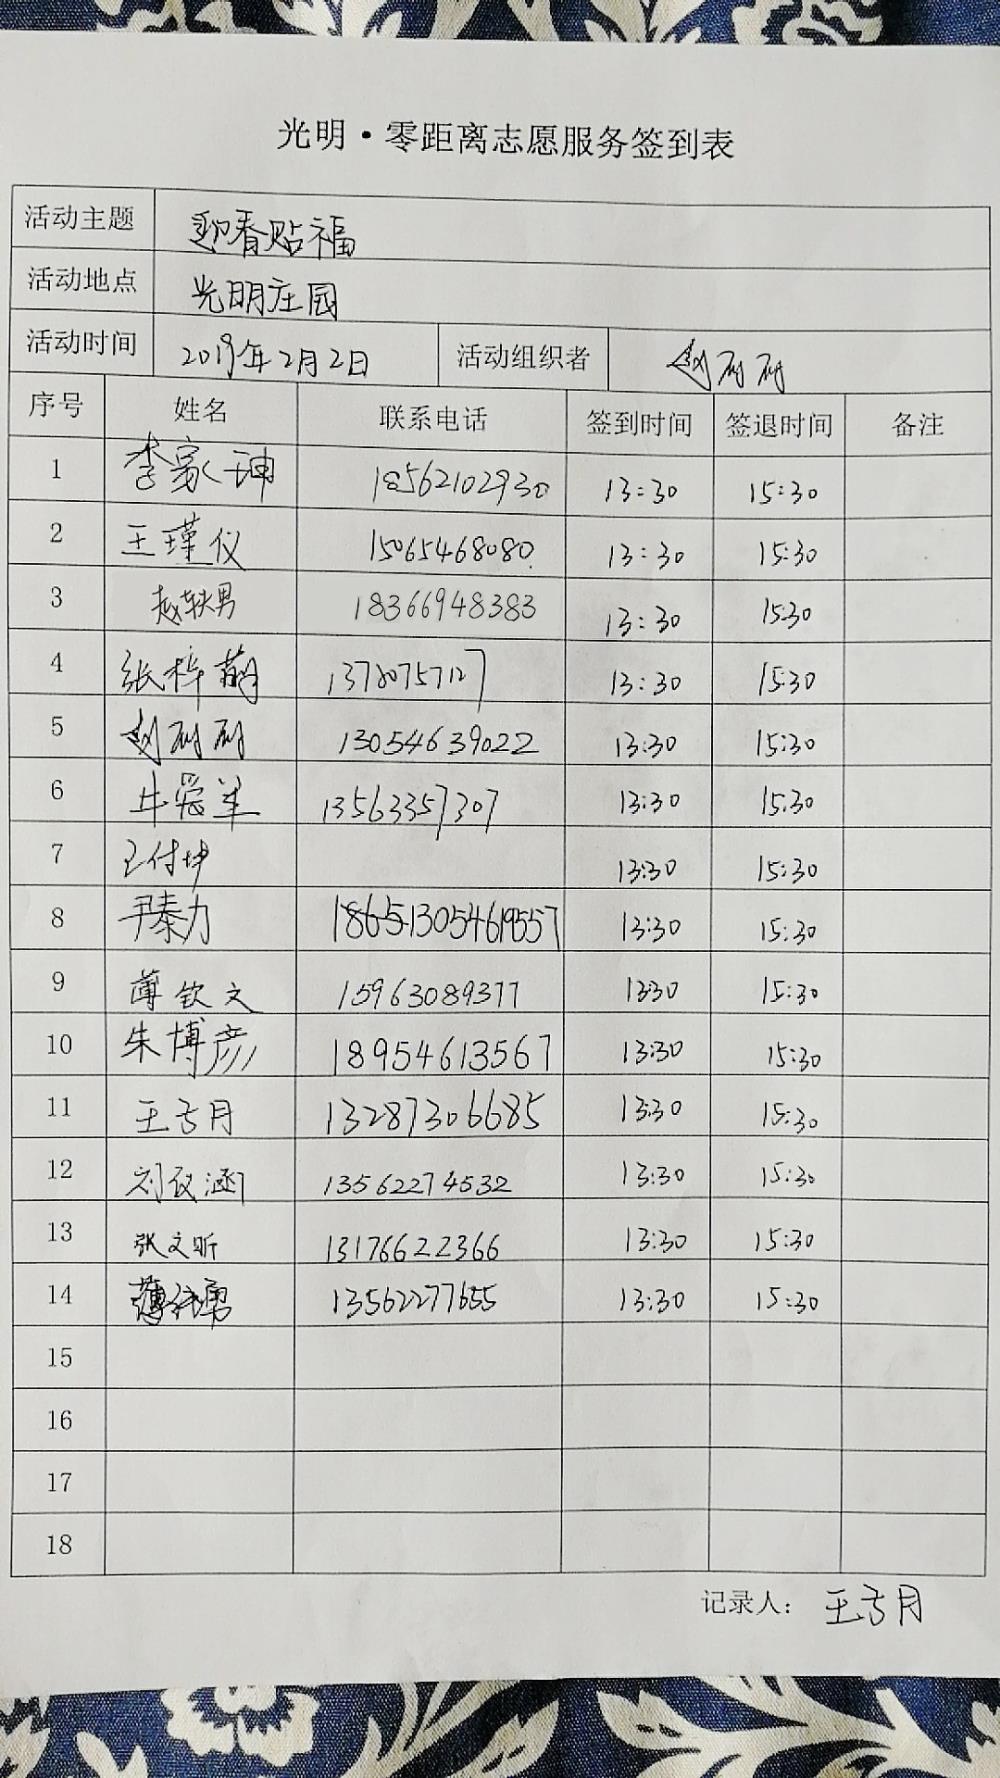 光明·零距离志愿服务签到表
活动主题 迎春贴福
活动地点 光明庄园
活动时间 2019年2月2日 活动组织者 赵
序号 姓名 联系电话 签到时间 签退时间 备注
1 李家珅 18562102930 13:30 15:30
2 王瑾仪 15065468080 13:30 15:30
3 赵轶男 18366948383 13:30 15:30
4 张梓萌 13:30 15:30
5 赵 13054639022 13:30 15:30
6 牛爱 13563357307 13:30 15:30
7 王付坤 13:30 15:30
8 尹秦力 13:30 15:30
9 薄钦文 15963089377 13:30 15:30
10 朱博彦 18954613567 13:30 15:30
11 王 月 13287306685 13:30 15:30
12 刘仪涵 13562274532 13:30 15:30
13 张文昕 13176622366 13:30 15:30
14 13562277655 13:30 15:30
15
16
17
18
记录人: 王 月